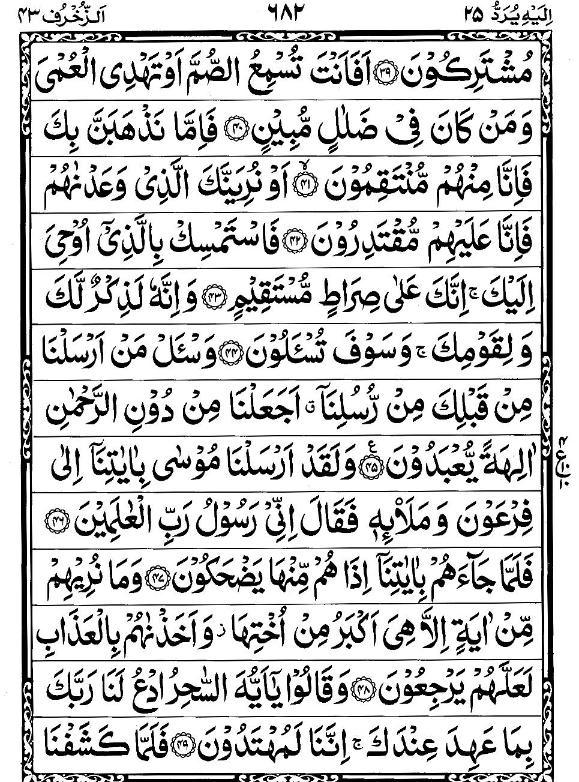 اِلَیْهِ یُرَدُّ ۲۵ ٦٨٢ اَلزُّخْرُف ۴۳
مُشْتَرِكُوْنَ ﴿۳۹﴾ اَفَاَنْتَ تُسْمِعُ الصُّمَّ اَوْ تَهْدِی الْعُمْیَ
وَ مَنْ كَانَ فِیْ ضَلٰلٍ مُّبِیْنٍ ﴿۴۰﴾ فَاِمَّا نَذْهَبَنَّ بِكَ
فَاِنَّا مِنْهُمْ مُّنْتَقِمُوْنَ ۙ﴿۴۱﴾ اَوْ نُرِیَنَّكَ الَّذِیْ وَعَدْنٰهُمْ
فَاِنَّا عَلَیْهِمْ مُّقْتَدِرُوْنَ ﴿۴۲﴾ فَاسْتَمْسِكْ بِالَّذِیْۤ اُوْحِیَ
اِلَیْكَ ۚ اِنَّكَ عَلٰی صِرَاطٍ مُّسْتَقِیْمٍ ﴿۴۳﴾ وَ اِنَّهٗ لَذِكْرٌ لَّكَ
وَ لِقَوْمِكَ ۚ وَ سَوْفَ تُسْـَٔلُوْنَ ﴿۴۴﴾ وَ سْـَٔلْ مَنْ اَرْسَلْنَا
مِنْ قَبْلِكَ مِنْ رُّسُلِنَاۤ ۗ اَجَعَلْنَا مِنْ دُوْنِ الرَّحْمٰنِ
اٰلِهَةً یُّعْبَدُوْنَ ﴿۴۵﴾ع وَ لَقَدْ اَرْسَلْنَا مُوْسٰی بِاٰیٰتِنَاۤ اِلٰی
فِرْعَوْنَ وَ مَلَا۠ىِٕهٖ فَقَالَ اِنِّیْ رَسُوْلُ رَبِّ الْعٰلَمِیْنَ ﴿۴۶﴾
فَلَمَّا جَآءَهُمْ بِاٰیٰتِنَاۤ اِذَا هُمْ مِّنْهَا یَضْحَكُوْنَ ﴿۴۷﴾ وَ مَا نُرِیْهِمْ
مِّنْ اٰیَةٍ اِلَّا هِیَ اَكْبَرُ مِنْ اُخْتِهَا ؗ وَ اَخَذْنٰهُمْ بِالْعَذَابِ
لَعَلَّهُمْ یَرْجِعُوْنَ ﴿۴۸﴾ وَ قَالُوْا یٰۤاَیُّهَ السّٰحِرُ ادْعُ لَنَا رَبَّكَ
بِمَا عَهِدَ عِنْدَكَ ۚ اِنَّنَا لَمُهْتَدُوْنَ ﴿۴۹﴾ فَلَمَّا كَشَفْنَا